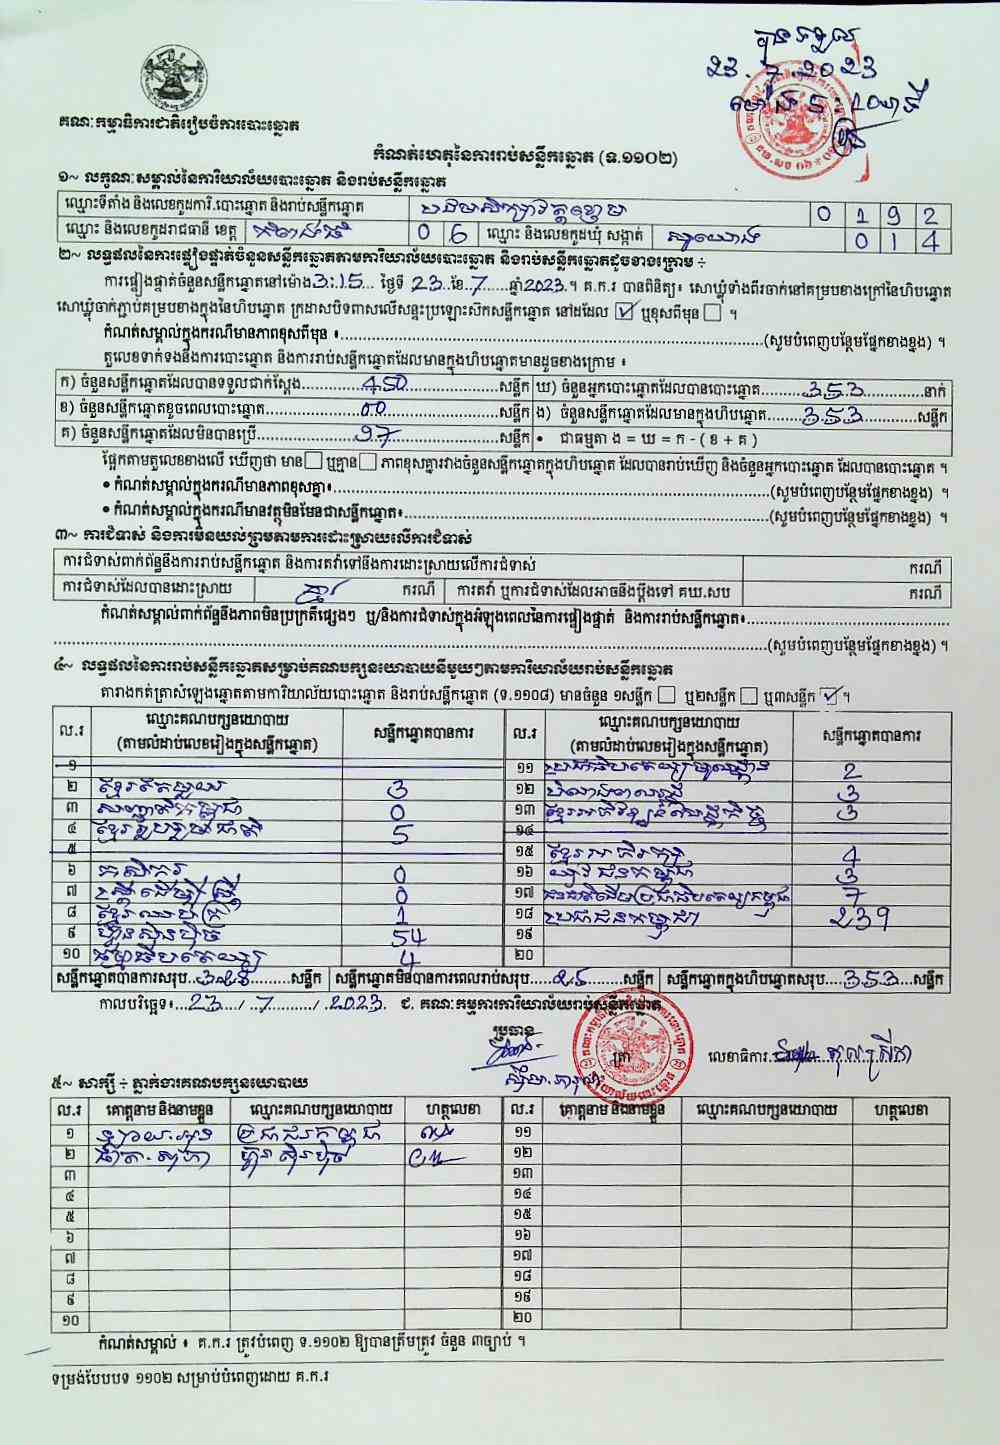 បានទទួល
23.7.2023
គណៈកម្មាធិការជាតិរៀបចំការបោះឆ្នោត
កំណត់ហេតុនៃការរាប់សន្លឹកឆ្នោត (ទ.១១០២)
១~ លក្ខណៈសម្គាល់នៃការិយាល័យបោះឆ្នោត និងរាប់សន្លឹកឆ្នោត
ឈ្មោះទីតាំង និងលេខកូដការិ.បោះឆ្នោត និងរាប់សន្លឹកឆ្នោត 0 1 9 2
ឈ្មោះ និងលេខកូដរាជធានី ខេត្ត កំពង់ធំ 0 6 ឈ្មោះ និងលេខកូដឃុំ សង្កាត់ 0 1 4
២~ លទ្ធផលនៃការផ្ទៀងផ្ទាត់ចំនួនសន្លឹកឆ្នោតតាមការិយាល័យបោះឆ្នោត និងរាប់សន្លឹកឆ្នោតដូចខាងក្រោម ÷
ការផ្ទៀងផ្ទាត់ចំនួនសន្លឹកឆ្នោតនៅម៉ោង 3:15 ថ្ងៃទី 23 ខែ 7 ឆ្នាំ 2023 ។ គ.ក.រ បានពិនិត្យ៖ សោឃ្លុំទាំងពីរចាក់នៅគម្របខាងក្រៅនៃហិបឆ្នោត
សោឃ្លុំចាក់ភ្ជាប់គម្របខាងក្នុងនៃហិបឆ្នោត ក្រដាសបិទពាសលើសន្ទះប្រឡោះស៊កសន្លឹកឆ្នោត នៅដដែល ☑ ឬខុសពីមុន ☐ ។
កំណត់សម្គាល់ក្នុងករណីមានភាពខុសពីមុន ៖ (សូមបំពេញបន្ថែមផ្នែកខាងខ្នង) ។
តួលេខទាក់ទងនឹងការបោះឆ្នោត និងការរាប់សន្លឹកឆ្នោតដែលមានក្នុងហិបឆ្នោតមានដូចខាងក្រោម ៖
ក) ចំនួនសន្លឹកឆ្នោតដែលបានទទួលជាក់ស្តែង 450 សន្លឹក ឃ) ចំនួនអ្នកបោះឆ្នោតដែលបានបោះឆ្នោត 353 នាក់
ខ) ចំនួនសន្លឹកឆ្នោតខូចពេលបោះឆ្នោត 00 សន្លឹក ង) ចំនួនសន្លឹកឆ្នោតដែលមានក្នុងហិបឆ្នោត 353 សន្លឹក
គ) ចំនួនសន្លឹកឆ្នោតដែលមិនបានប្រើ 97 សន្លឹក • ជាធម្មតា ង = ឃ = ក - ( ខ + គ )
ផ្អែកតាមតួលេខខាងលើ ឃើញថា មាន ☐ ឬគ្មាន ☐ ភាពខុសគ្នារវាងចំនួនសន្លឹកឆ្នោតក្នុងហិបឆ្នោត ដែលបានរាប់ឃើញ និងចំនួនអ្នកបោះឆ្នោត ដែលបានបោះឆ្នោត ។
• កំណត់សម្គាល់ក្នុងករណីមានភាពខុសគ្នា៖ (សូមបំពេញបន្ថែមផ្នែកខាងខ្នង) ។
• កំណត់សម្គាល់ក្នុងករណីមានវត្ថុមិនមែនជាសន្លឹកឆ្នោត៖ (សូមបំពេញបន្ថែមផ្នែកខាងខ្នង) ។
៣~ ការជំទាស់ និងការមិនយល់ព្រមតាមការដោះស្រាយលើការជំទាស់
ការជំទាស់ពាក់ព័ន្ធនឹងការរាប់សន្លឹកឆ្នោត និងការតវ៉ាទៅនឹងការដោះស្រាយលើការជំទាស់ ករណី
ការជំទាស់ដែលបានដោះស្រាយ គ្មាន ករណី ការតវ៉ា ឬការជំទាស់ដែលអាចនឹងប្តឹងទៅ គឃ.សប ករណី
កំណត់សម្គាល់ពាក់ព័ន្ធនឹងភាពមិនប្រក្រតីផ្សេងៗ ឬ/និងការជំទាស់ក្នុងអំឡុងពេលនៃការផ្ទៀងផ្ទាត់ និងការរាប់សន្លឹកឆ្នោត៖
(សូមបំពេញបន្ថែមផ្នែកខាងខ្នង) ។
៤~ លទ្ធផលនៃការរាប់សន្លឹកឆ្នោតសម្រាប់គណបក្សនយោបាយនីមួយៗតាមការិយាល័យរាប់សន្លឹកឆ្នោត
តារាងកត់ត្រាសំឡេងឆ្នោតតាមការិយាល័យបោះឆ្នោត និងរាប់សន្លឹកឆ្នោត (ទ.១១០៨) មានចំនួន ១សន្លឹក ☐ ឬ២សន្លឹក ☐ ឬ៣សន្លឹក ☑ ។
ល.រ ឈ្មោះគណបក្សនយោបាយ (តាមលំដាប់លេខរៀងក្នុងសន្លឹកឆ្នោត) សន្លឹកឆ្នោតបានការ ល.រ ឈ្មោះគណបក្សនយោបាយ (តាមលំដាប់លេខរៀងក្នុងសន្លឹកឆ្នោត) សន្លឹកឆ្នោតបានការ
១ ១១ ប្រជាធិបតេយ្យមូលដ្ឋាន 2
២ ខ្មែរតែមួយ 3 ១២ 3
៣ សញ្ជាតិកម្ពុជា 0 ១៣ ខ្មែរអភិវឌ្ឍន៍សេដ្ឋកិច្ច 3
៤ ខ្មែររួបរួមជាតិ 5 ១៤
៥ ១៥ ខ្មែរអភិរក្ស 4
៦ កសិករ 0 ១៦ យុវជនកម្ពុជា 3
៧ ស្ត្រីដើម្បីស្ត្រី 0 ១៧ 7
៨ ខ្មែរឈប់ក្រ 1 ១៨ ប្រជាជនកម្ពុជា 239
៩ ហ៊្វុនស៊ិនប៉ិច 54 ១៩
១០ ធម្មាធិបតេយ្យ 4 ២០
សន្លឹកឆ្នោតបានការសរុប 328 សន្លឹក សន្លឹកឆ្នោតមិនបានការពេលរាប់សរុប 25 សន្លឹក សន្លឹកឆ្នោតក្នុងហិបឆ្នោតសរុប 353 សន្លឹក
កាលបរិច្ឆេទ៖ 23 / 7 / 2023 ជ. គណៈកម្មការការិយាល័យរាប់សន្លឹកឆ្នោត
ប្រធាន
ត្រា លេខាធិការ
៥~ សាក្សី ÷ ភ្នាក់ងារគណបក្សនយោបាយ
ល.រ គោត្តនាម និងនាមខ្លួន ឈ្មោះគណបក្សនយោបាយ ហត្ថលេខា ល.រ គោត្តនាម និងនាមខ្លួន ឈ្មោះគណបក្សនយោបាយ ហត្ថលេខា
១ ប្រជាជនកម្ពុជា ១១
២ ហ៊្វុនស៊ិនប៉ិច ១២
៣ ១៣
៤ ១៤
៥ ១៥
៦ ១៦
៧ ១៧
៨ ១៨
៩ ១៩
១០ ២០
កំណត់សម្គាល់ ៖ គ.ក.រ ត្រូវបំពេញ ទ.១១០២ ឱ្យបានត្រឹមត្រូវ ចំនួន ៣ច្បាប់ ។
ទម្រង់បែបបទ ១១០២ សម្រាប់បំពេញដោយ គ.ក.រ